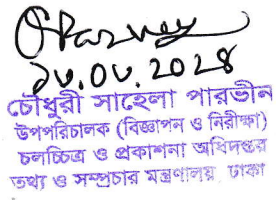 ১৮.০৮.২০২৪
চৌধুরী সাহেলা পারভীন
উপপরিচালক (বিজ্ঞাপন ও নিরীক্ষা)
চলচ্চিত্র ও প্রকাশনা অধিদপ্তর
তথ্য ও সম্প্রচার মন্ত্রণালয়, ঢাকা